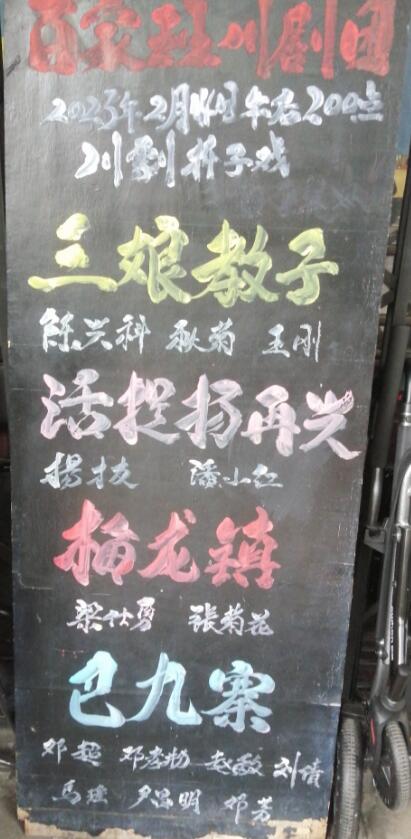 百家班川剧团
2023年2月14日午后200点
川剧折子戏
三娘教子
陈兴科 秋菊 王刚
活捉扬再兴
揚友 潘小仁
梅龙镇
梁仕勇 張菊花
巴九寨
邓超 邓孝勤 赵敏 刘倩
馬瑾 明 邓芳